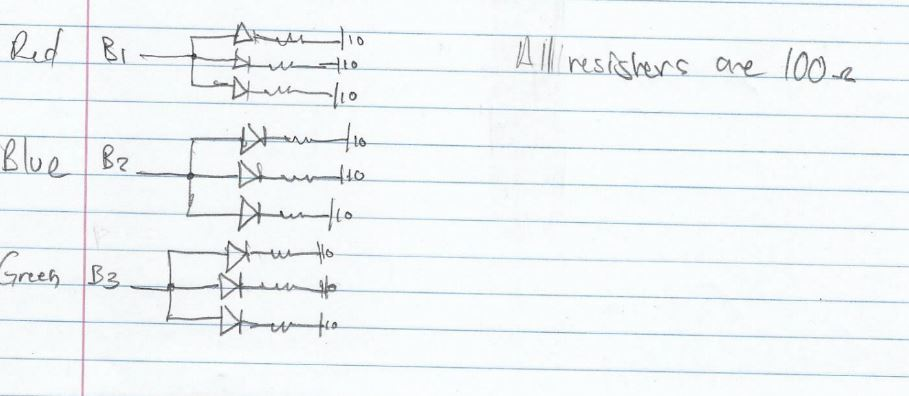 Red B1 10
10
10
All resisters are 100Ω
Blue B2 10
10
10
Green B3 10
10
10